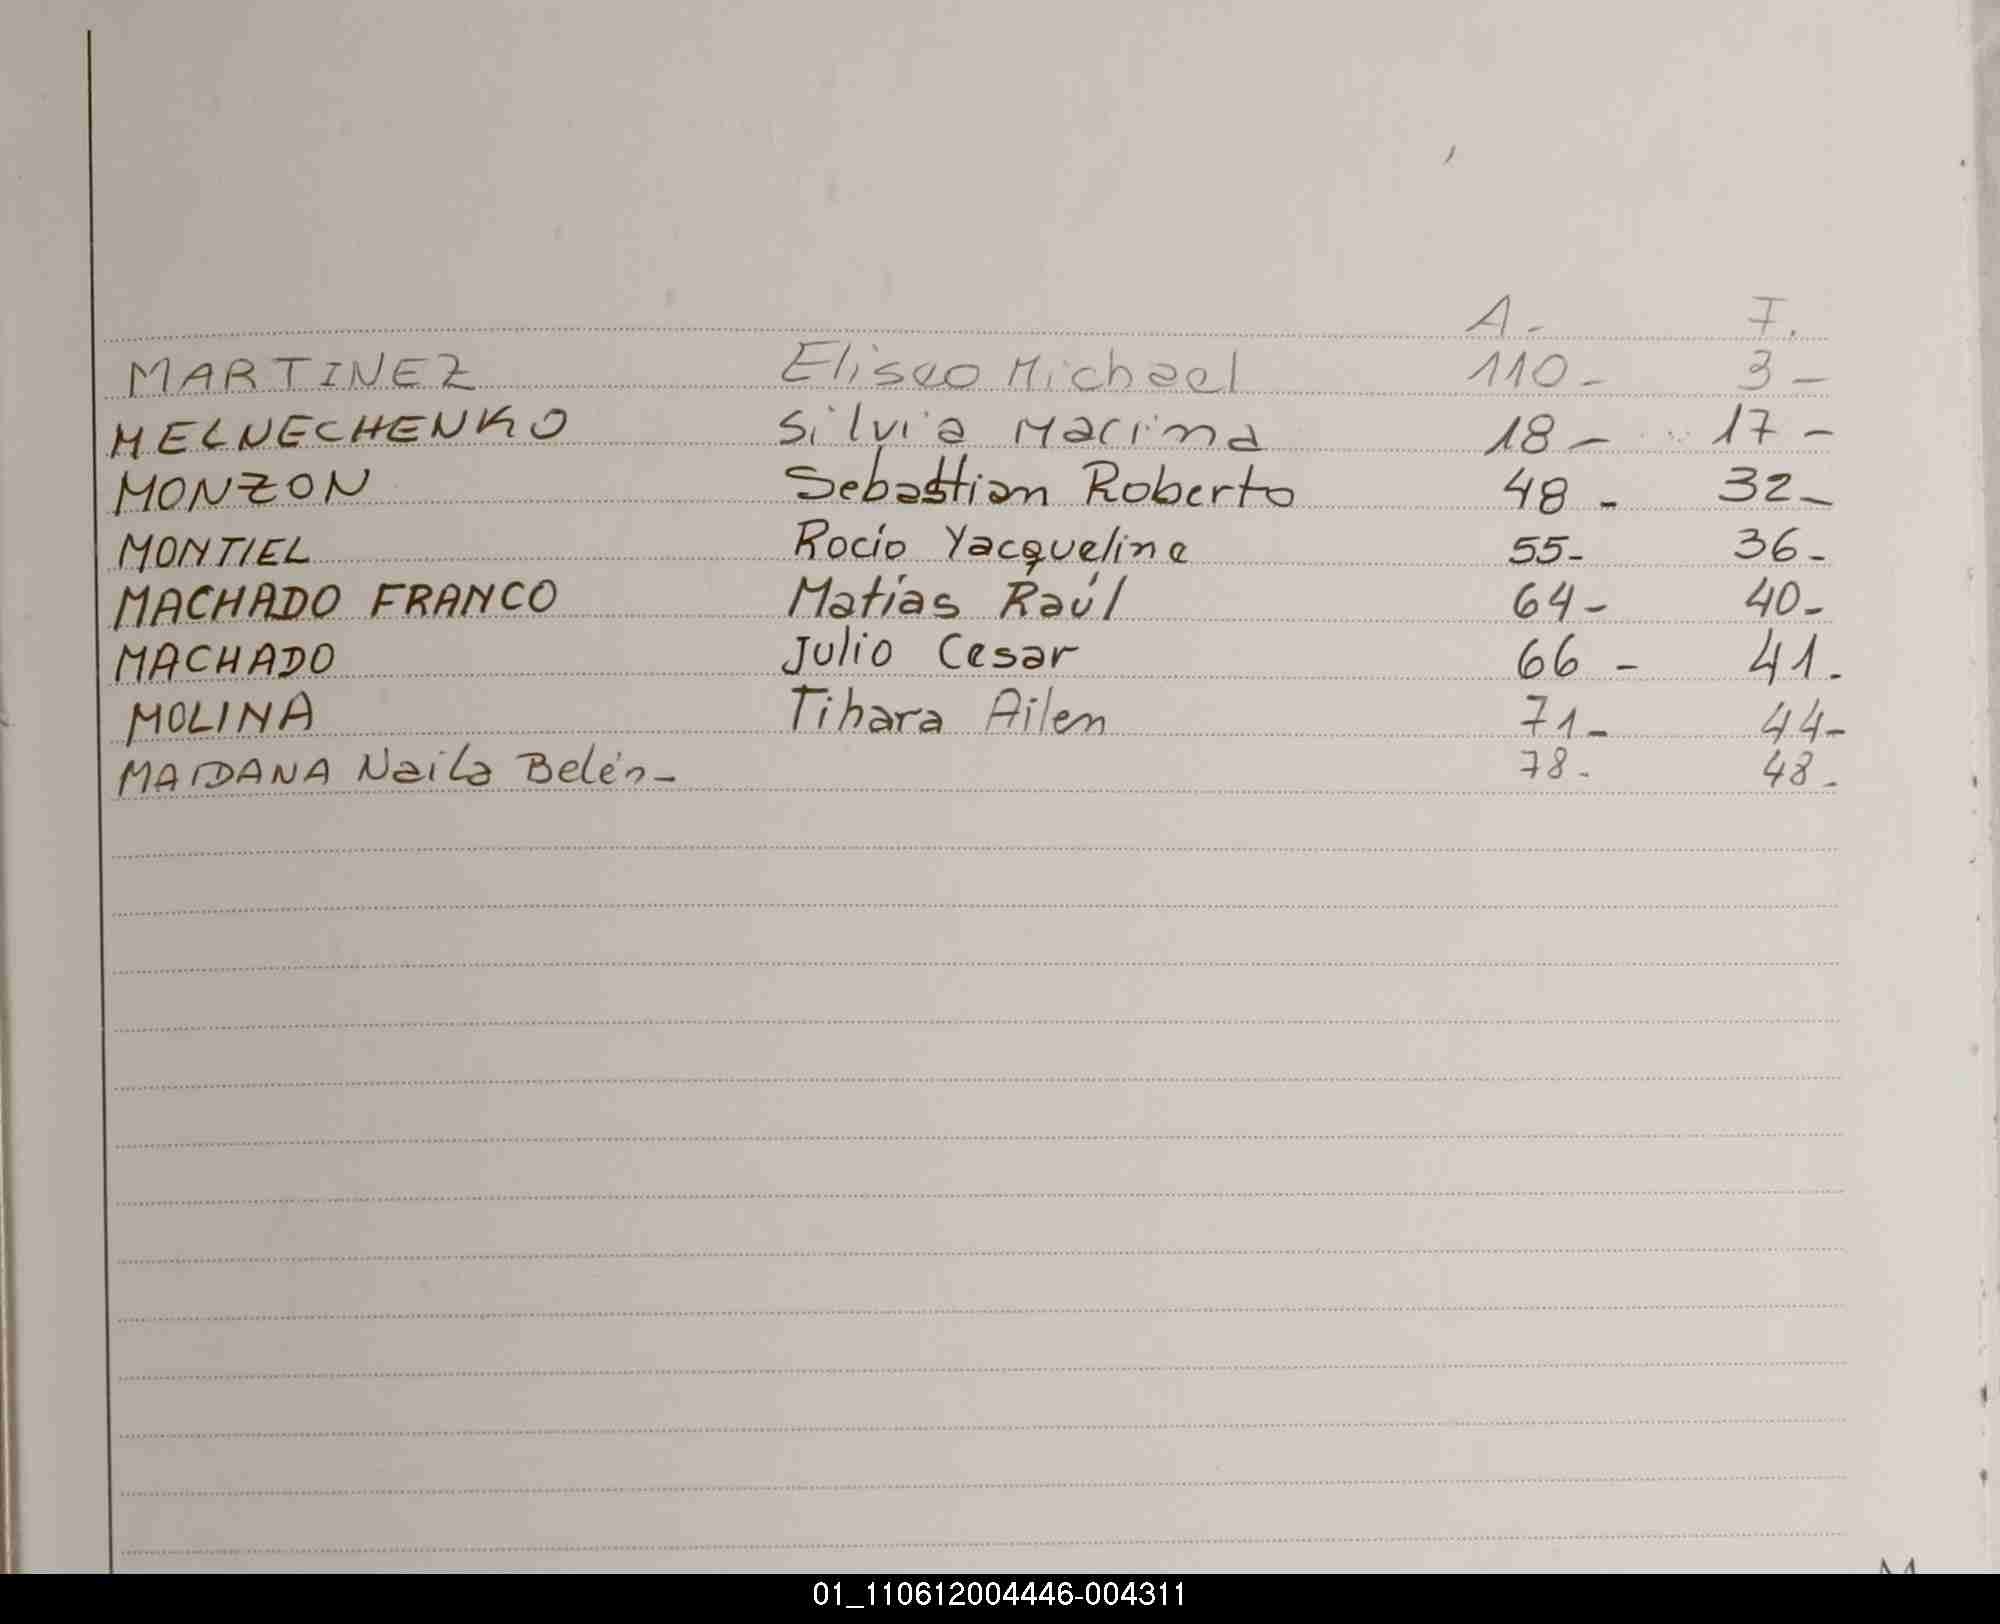 A. - F.
MARTINEZ Eliseo Michael 110 - 3 -
MELNECHENKO Silvia Macrina 18 - 17 -
MONZON Sebastian Roberto 48 - 32 -
MONTIEL Rocio Yacqueline 55 - 36 -
MACHADO FRANCO Matías Raúl 64 - 40 -
MACHADO Julio Cesar 66 - 41.
MOLINA Tihara Ailen 71 - 44 -
MAIDANA Naila Belén - 78 - 48 -
01_110612004446-004311